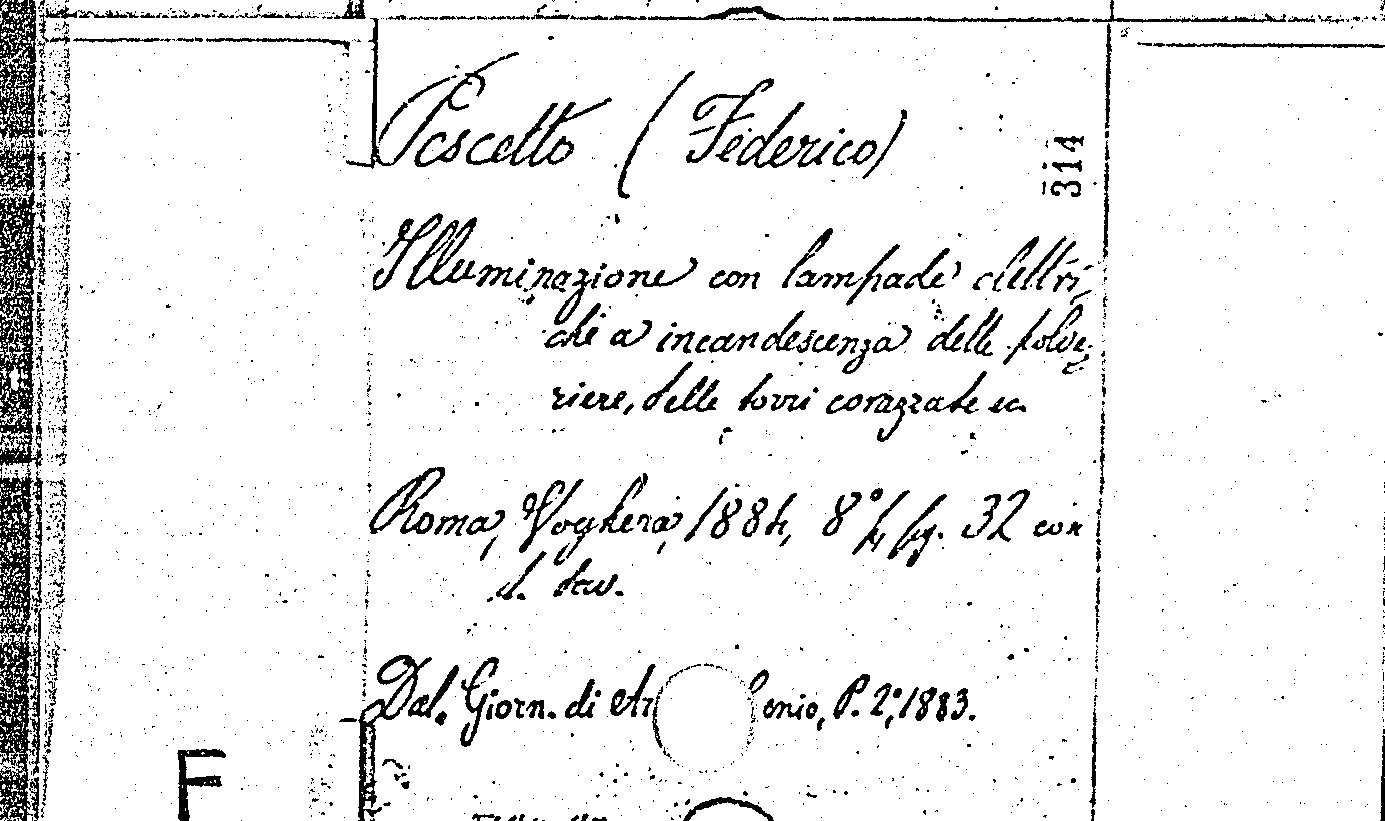 Pescetto (Federico)
314
Illuminazione con lampade elettri-
che a incandescenza delle polve-
riere, delle torri corazzate ec.
Roma, Voghera, 1884, 8° pg. 32 con
tav.
Dal Giorn. di Ar enio, P. 2ª, 1883.
F